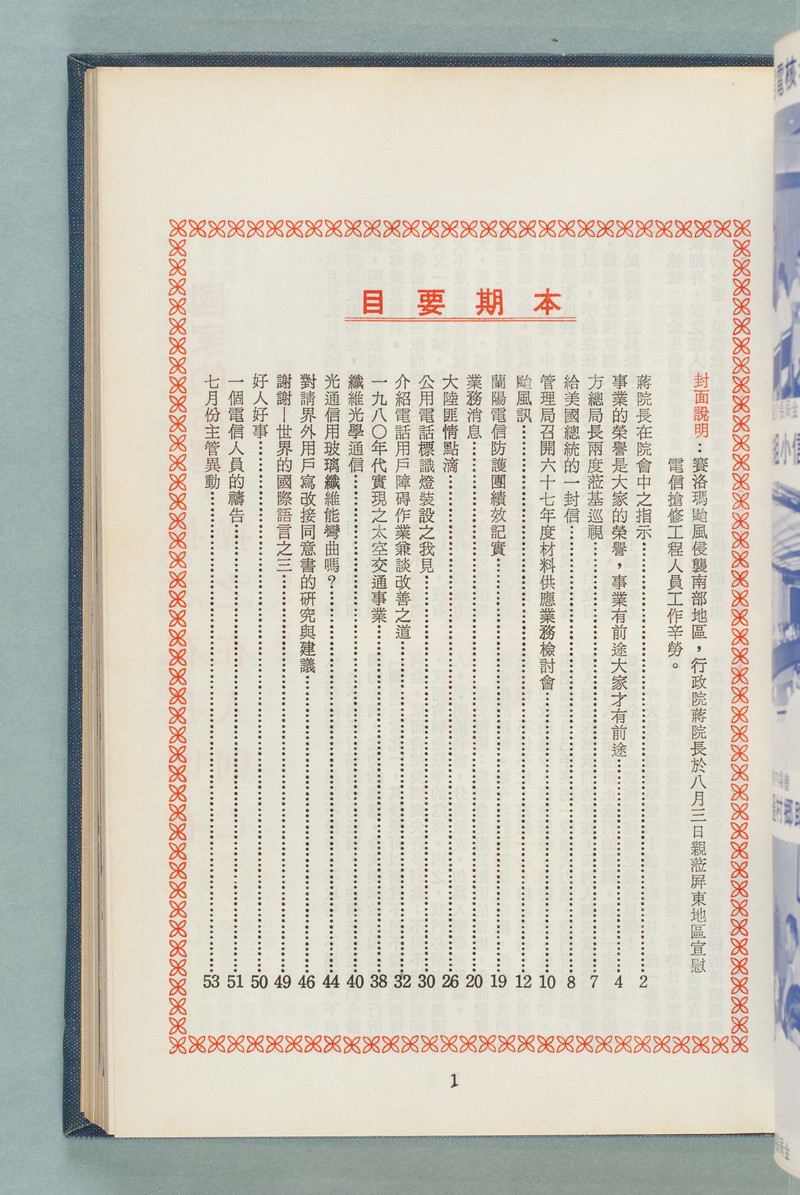 本期要目
封面說明：賽洛瑪颱風侵襲南部地區，行政院蔣院長於八月三日親蒞屏東地區宣慰
電信搶修工程人員工作辛勞。
蔣院長在院會中之指示 2
事業的榮譽是大家的榮譽，事業有前途大家才有前途 4
方總局長兩度蒞基巡視 7
給美國總統的一封信 8
管理局召開六十七年度材料供應業務檢討會 10
颱風訊 12
蘭陽電信防護團績效記實 19
業務消息 20
大陸匪情點滴 26
公用電話標識燈裝設之我見 30
介紹電話用戶障碍作業兼談改善之道 32
一九八〇年代實現之太空交通事業 38
纖維光學通信 40
光通信用玻璃纖維能彎曲嗎？ 44
對請界外用戶寫改接同意書的研究與建議 46
謝謝—世界的國際語言之三 49
好人好事 50
一個電信人員的禱告 51
七月份主管異動 53
1